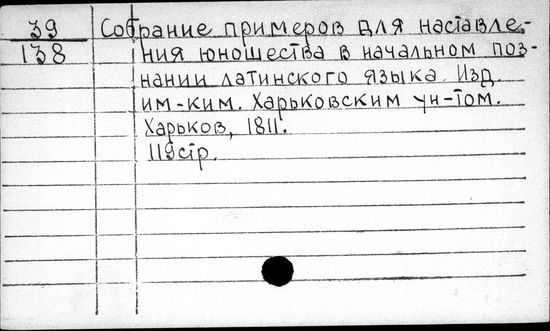 39 Собрание примеров для наставле-
138 ния юношества в начальном поз-
нании латинского языка. Изд.
им-ким. Харьковским ун-том.
Харьков, 1811.
119стр.